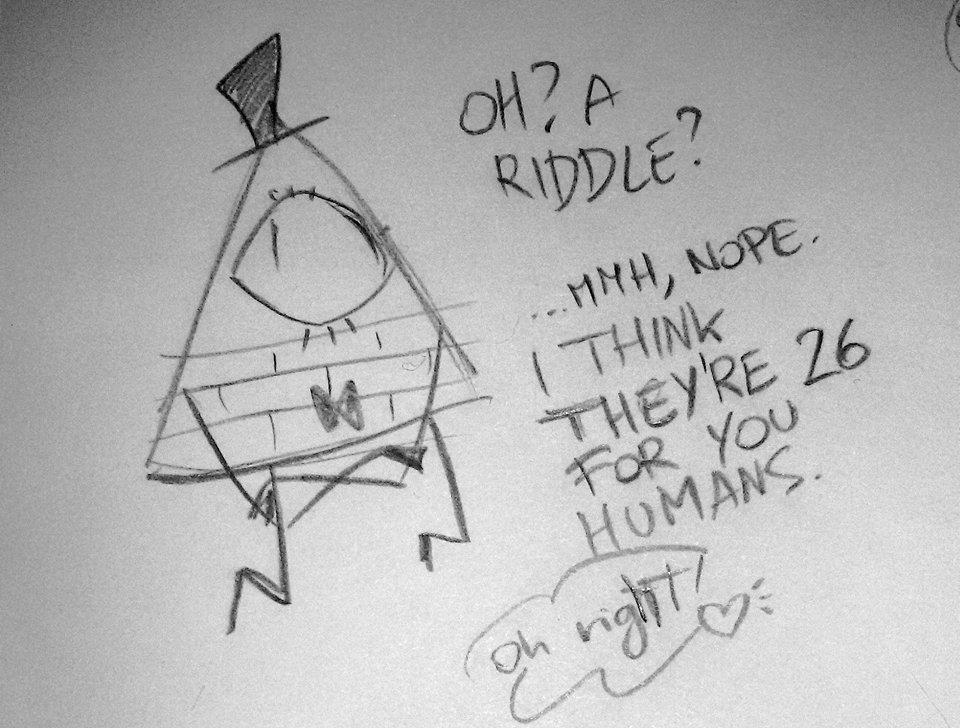 OH? A
RIDDLE?
...MMH, NOPE.
I THINK
THEY'RE 26
FOR YOU
HUMANS.
oh right!